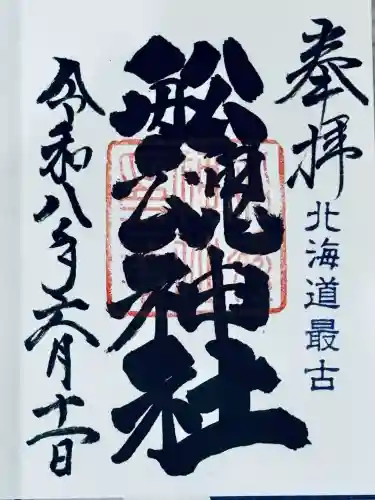 奉拝
北海道最古
船魂神社
令和八年六月十一日